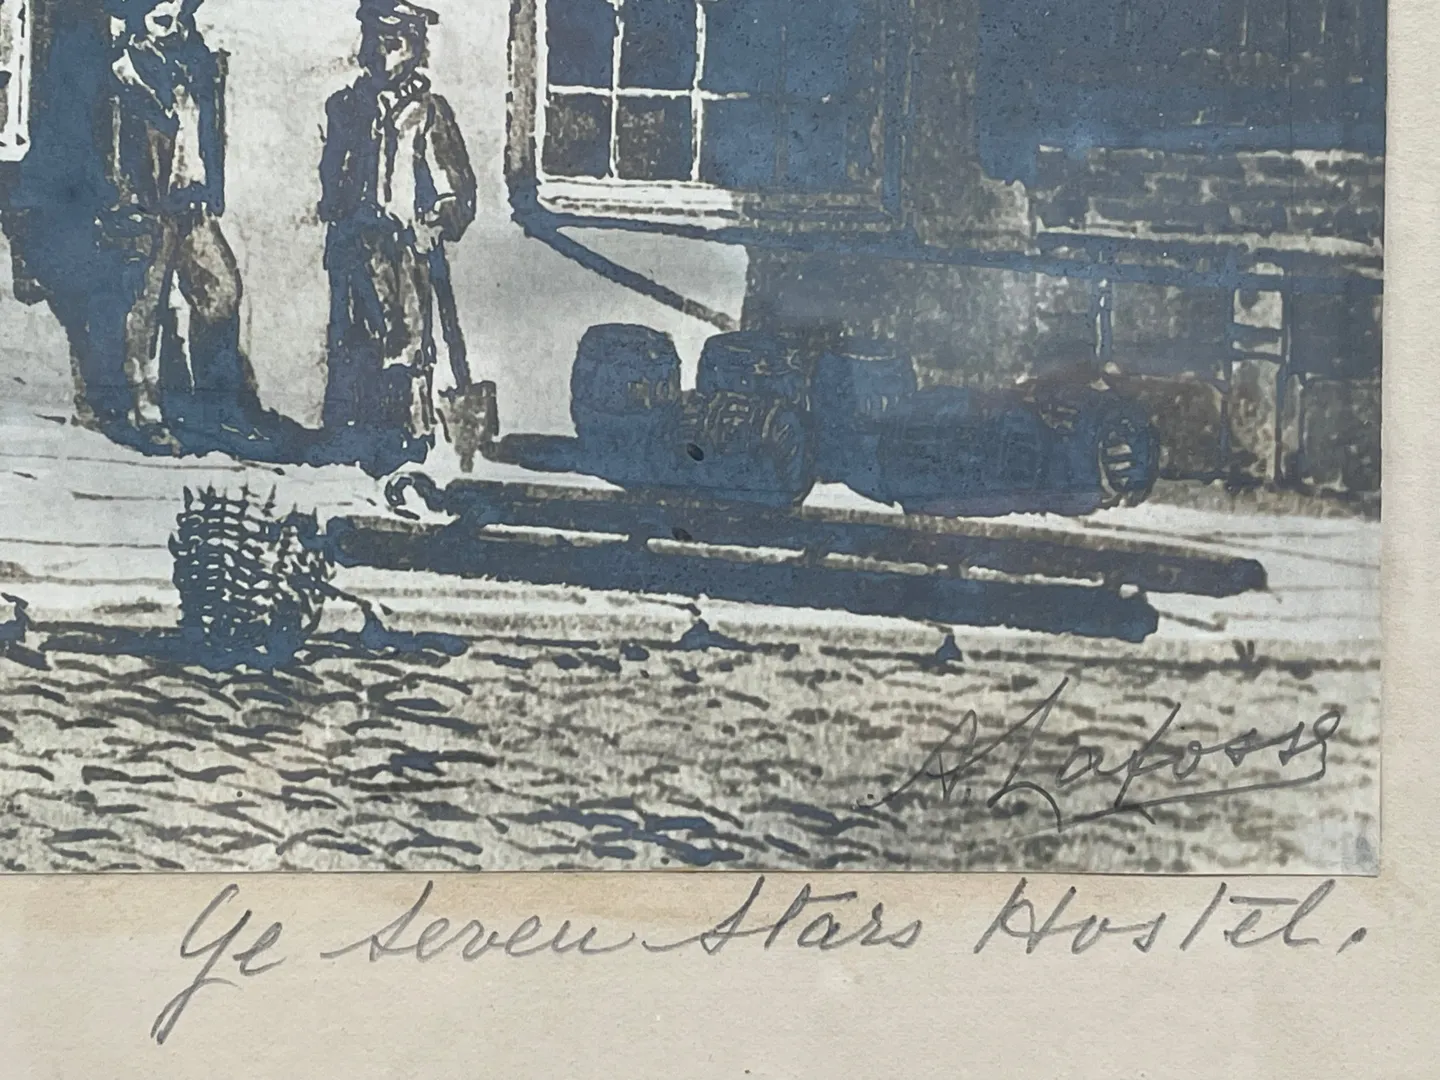 A. Lafosse
Ye Seven Stars Hostel.